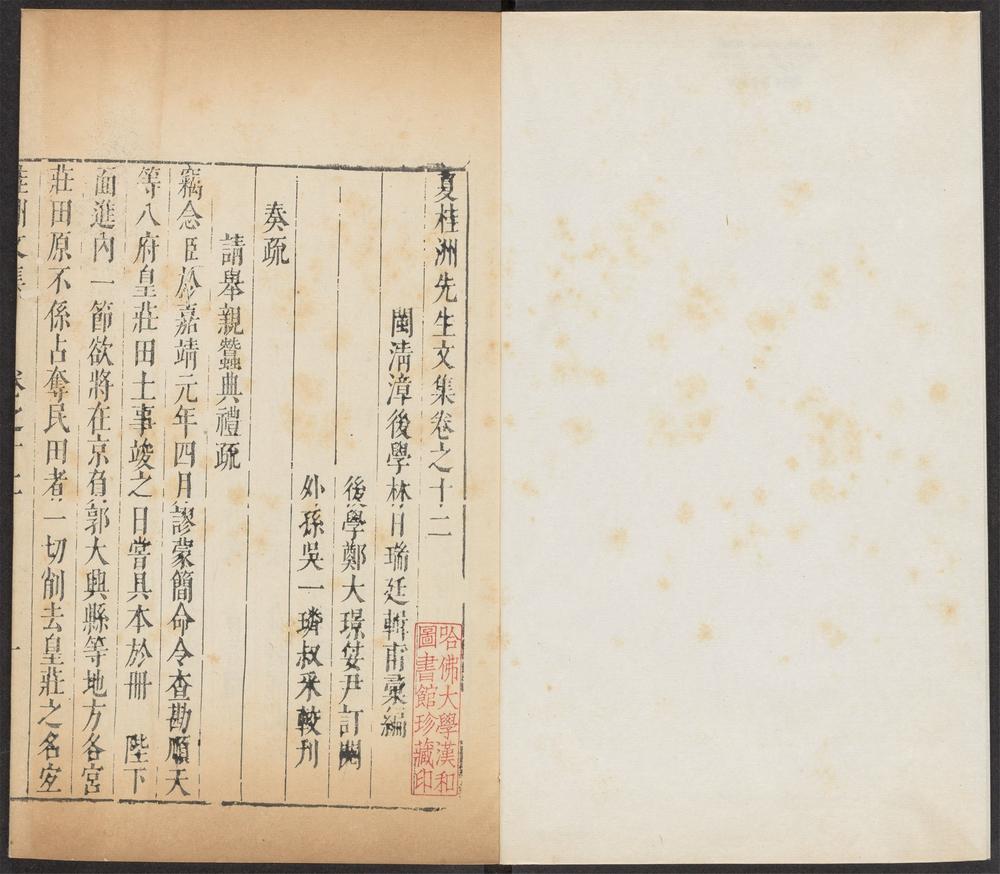 夏桂洲先生文集卷之十二
閩清漳後學林日瑞廷輯甫彙編
後學鄭大璟笶尹訂閱
外孫吳一璘叔采較刊
奏疏
請舉親蠶典禮疏
竊念臣於嘉靖元年四月謬蒙簡命令查勘順天
等八府皇莊田土事竣之日嘗具本於冊　陛下
面進內一節欲將在京負郭大興縣等地方各宮
莊田原不係占奪民田者一切削去皇莊之名定
桂洲文集　卷之十二　一
哈佛大學漢和
圖書館珍藏印